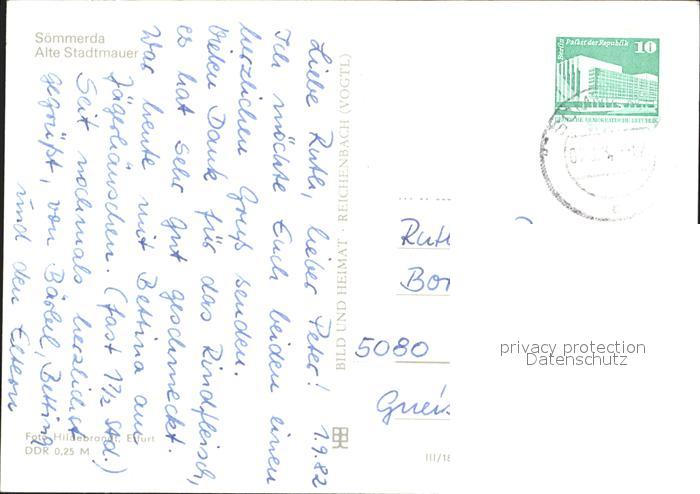 Sömmerda
Alte Stadtmauer
1.9.82
Liebe Ruth, lieber Peter!
Ich möchte Euch beiden einen
herzlichen Gruß senden.
Vielen Dank für das Rindfleisch,
es hat sehr gut geschmeckt.
War heute mit Bettina am
Jägerhäuschen. (fast 1½ Std.)
Seit nochmals herzlichst
gegrüßt, von Bärbel, Bettina
und den Eltern
Foto Hildebrandt, Erfurt
DDR 0,25 M
BILD UND HEIMAT · REICHENBACH (VOGTL)
III/18
Berlin Palast der Republik 10
DEUTSCHE DEMOKRATISCHE REPUBLIK
Ruth
Bor
5080
privacy protection
Datenschutz